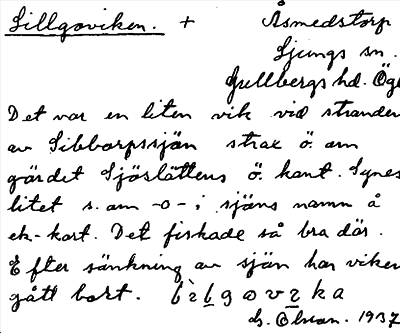 Sillgoviken. + Åsmedstorp
Ljungs sn.
Gullbergs hd. Ögl
Det var en liten vik vid stranden
av Sibborpssjön strax ö. om
gärdet Sjöslättens ö. kant. Synes
litet s. om -o- i sjöns namn å
ek-kart. Det fiskade så bra där.
Efter sänkning av sjön har viken
gått bort.
ds. Olson. 1937